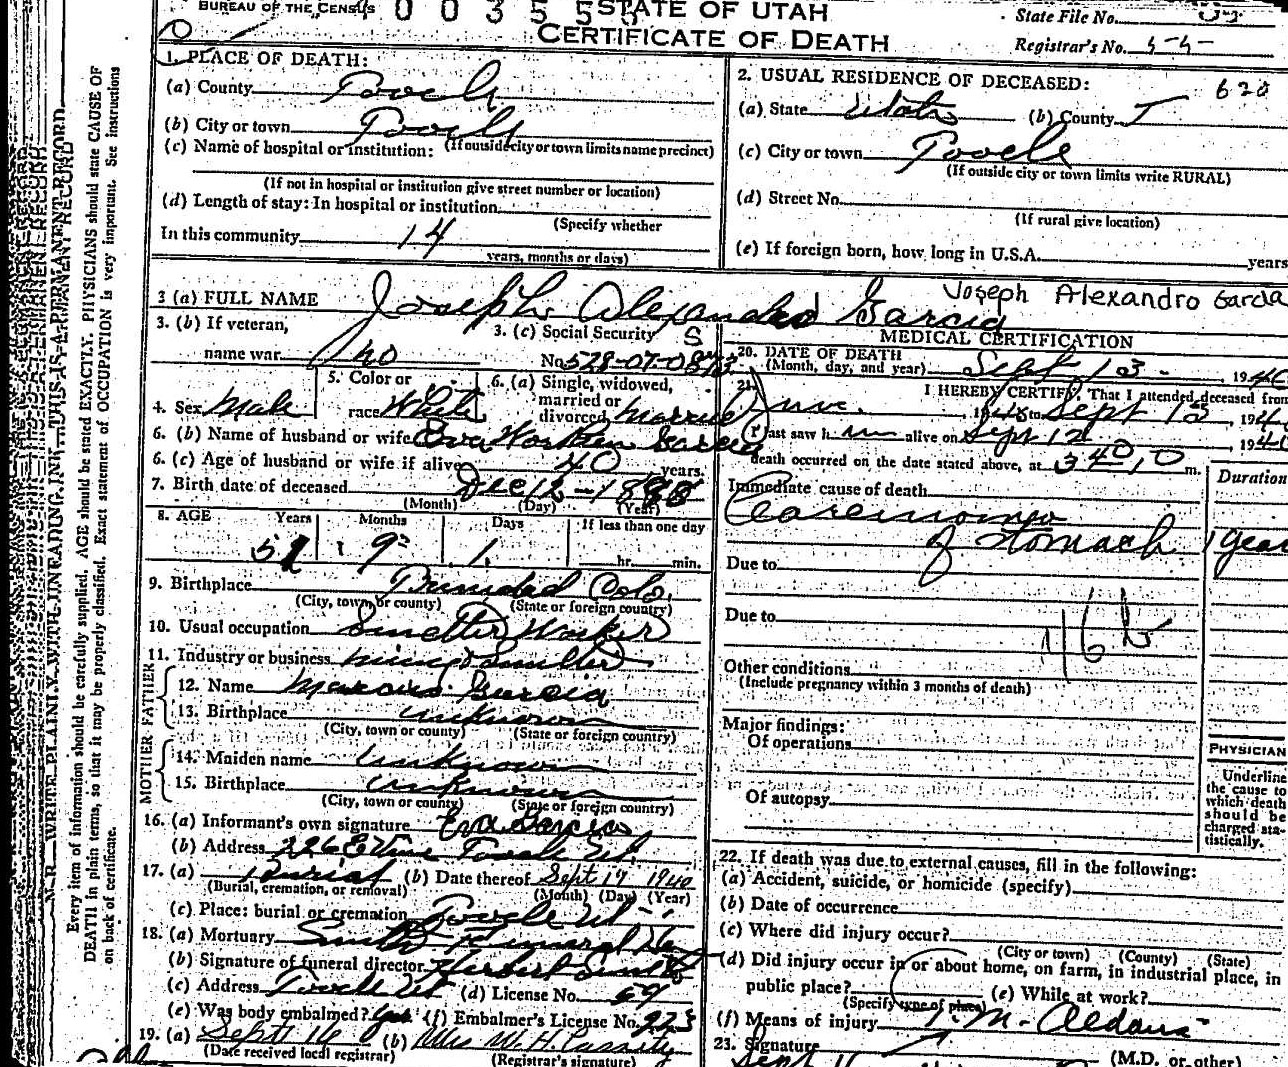 BUREAU OF THE CENSUS
0 0 3 5 5
STATE OF UTAH
CERTIFICATE OF DEATH
State File No.
Registrar's No.
N. B. WRITE PLAINLY WITH UNFADING INK—THIS IS A PERMANENT RECORD
Every item of information should be carefully supplied. AGE should be stated EXACTLY. PHYSICIANS should state CAUSE OF
DEATH in plain terms, so that it may be properly classified. Exact statement of OCCUPATION is very important. See instructions
on back of certificate.
1. PLACE OF DEATH:
(a) County Tooele
(b) City or town Tooele
(If outside city or town limits name precinct)
(c) Name of hospital or institution:
(If not in hospital or institution give street number or location)
(d) Length of stay: In hospital or institution
(Specify whether
In this community 14
years, months or days)
2. USUAL RESIDENCE OF DECEASED: 620
(a) State Utah (b) County T
(c) City or town Tooele
(If outside city or town limits write RURAL)
(d) Street No.
(If rural give location)
(e) If foreign born, how long in U.S.A. years
3 (a) FULL NAME Joseph Alexandro Garcia
Joseph Alexandro Garcia
3. (b) If veteran,
name war no
3. (c) Social Security S
No. 528-07-0873
4. Sex Male
5. Color or
race White
6. (a) Single, widowed,
married or
divorced Married
6. (b) Name of husband or wife Eva Garcia
6. (c) Age of husband or wife if alive 40 years.
7. Birth date of deceased Dec 12-
(Month) (Day) (Year)
8. AGE Years Months Days If less than one day
51 9 1 hr. min.
9. Birthplace Trinidad Colo.
(City, town or county) (State or foreign country)
10. Usual occupation Smelter Worker
11. Industry or business Smelter
FATHER
12. Name Garcia
13. Birthplace unknown
(City, town or county) (State or foreign country)
MOTHER
14. Maiden name Unknown
15. Birthplace unknown
(City, town or county) (State or foreign country)
16. (a) Informant's own signature Eva Garcia
(b) Address Vine Tooele Ut.
17. (a) Burial (b) Date thereof Sept 17 1940
(Burial, cremation, or removal) (Month) (Day) (Year)
(c) Place: burial or cremation Tooele Ut
18. (a) Mortuary Smith Funeral
(b) Signature of funeral director Herbert Smith
(c) Address Tooele Ut (d) License No. 69
(e) Was body embalmed? yes (f) Embalmer's License No. 223
19. (a) Sept 16 (b) Mrs W. H. Cassity
(Date received local registrar) (Registrar's signature)
MEDICAL CERTIFICATION
20. DATE OF DEATH
(Month, day, and year) Sept 13 - , 1940
21. I HEREBY CERTIFY, That I attended deceased from
June 19 to Sept 13 194
I last saw him alive on Sept 12 1940
death occurred on the date stated above, at m.
Immediate cause of death
Carcinoma
of Stomach
Duration
1 year
Due to
Due to
Other conditions
(Include pregnancy within 3 months of death)
Major findings:
Of operations
Of autopsy
PHYSICIAN
Underline
the cause to
which death
should be
charged sta-
tistically.
22. If death was due to external causes, fill in the following:
(a) Accident, suicide, or homicide (specify)
(b) Date of occurrence
(c) Where did injury occur?
(City or town) (County) (State)
(d) Did injury occur in or about home, on farm, in industrial place, in
public place?
(Specify type of place) (e) While at work?
(f) Means of injury
23. Signature
(M.D. or other)